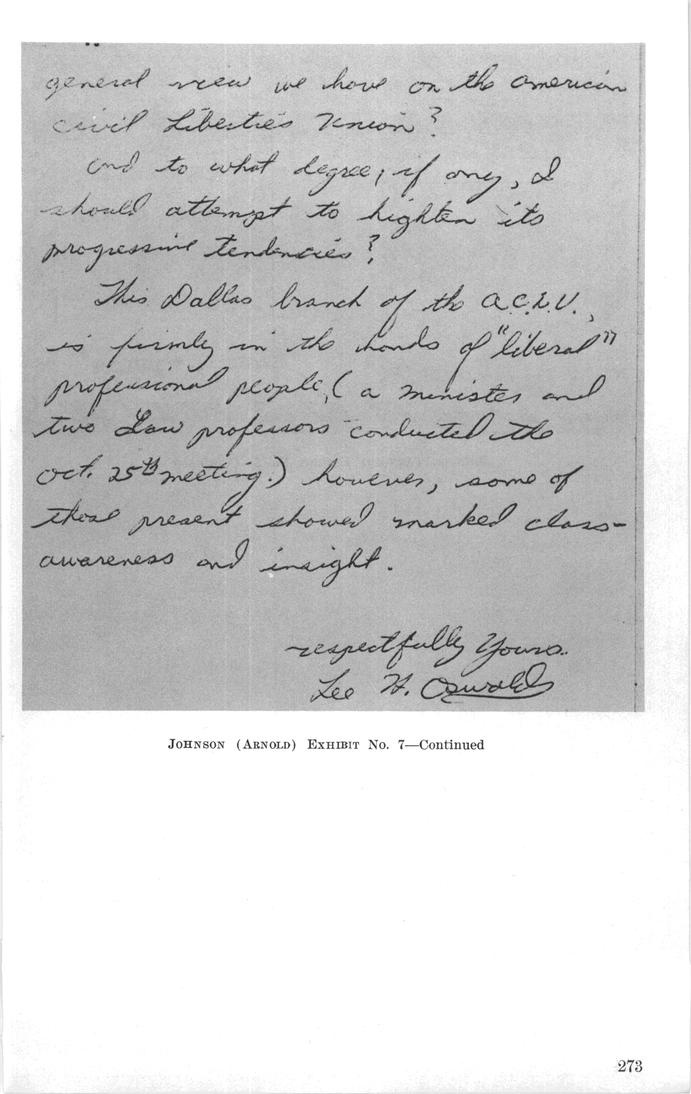 general view we have on the American
civil Liberties Union?
and to what degree, if any, I
should attempt to highten its
progressive tendencies?
This Dallas branch of the A.C.L.U.,
is firmly in the hands of "liberal"
professional people, (a minister and
two Law professors conducted the
Oct. 25th meeting.) however, some of
those present showed marked class-
awareness and insight.
respectfully Yours.
Lee H. Oswald
JOHNSON (ARNOLD) EXHIBIT No. 7—Continued
273